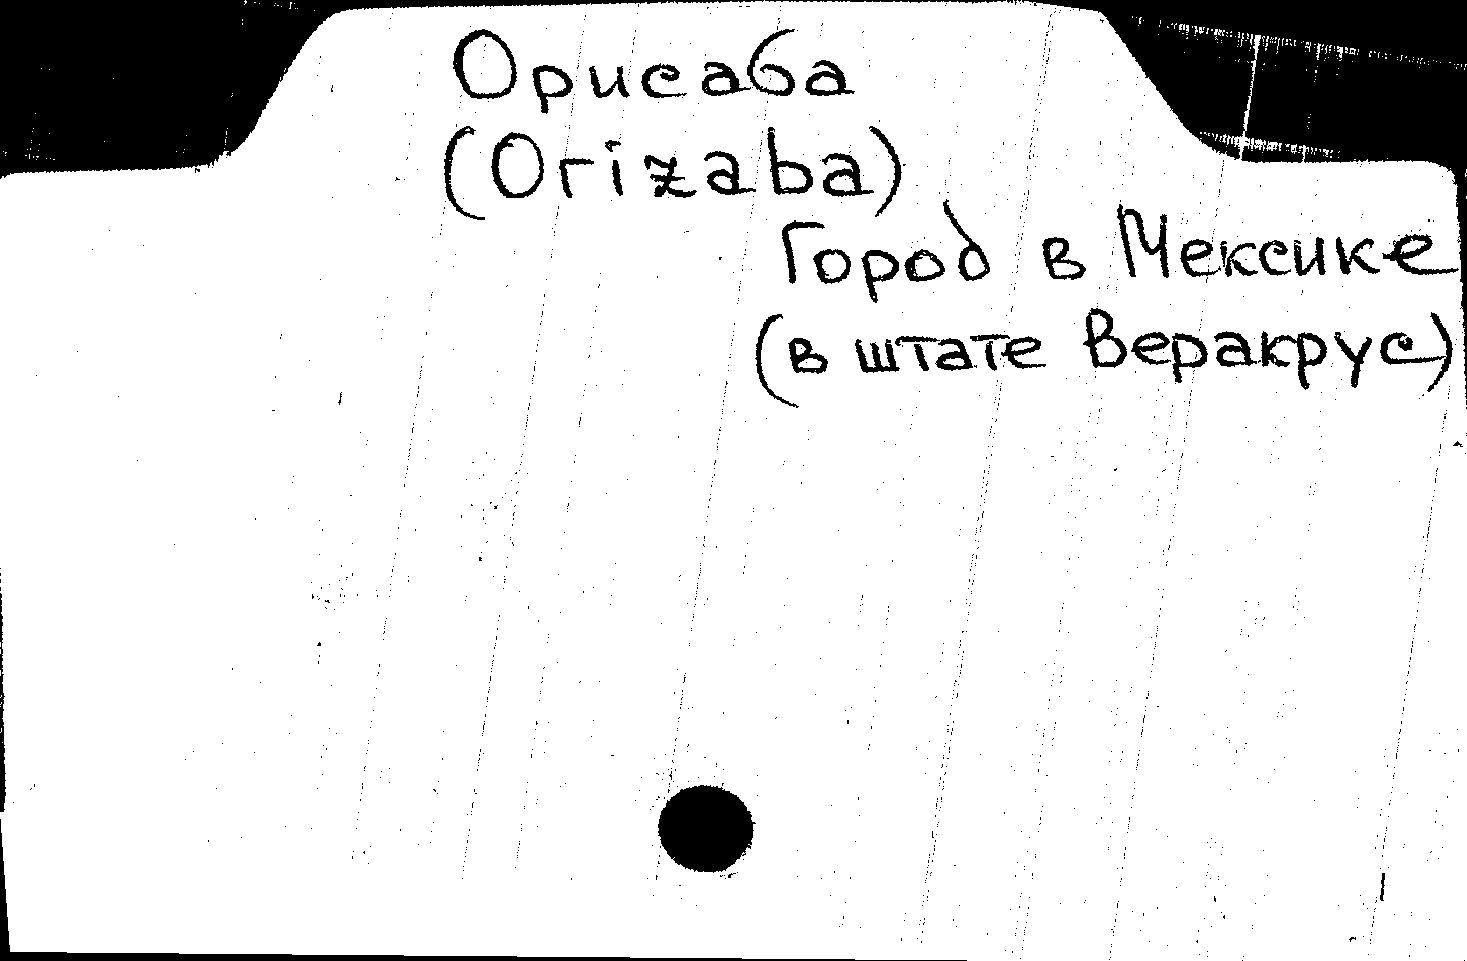 Орисаба
(Orizaba)
Город в Мексике
(в штате Веракрус)